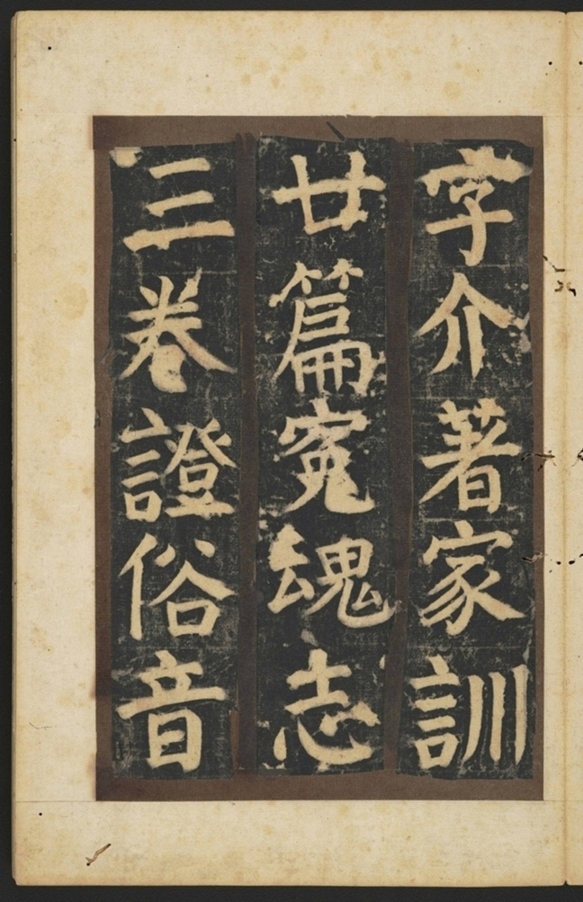 字介著家訓
廿篇寃魂志
三卷證俗音